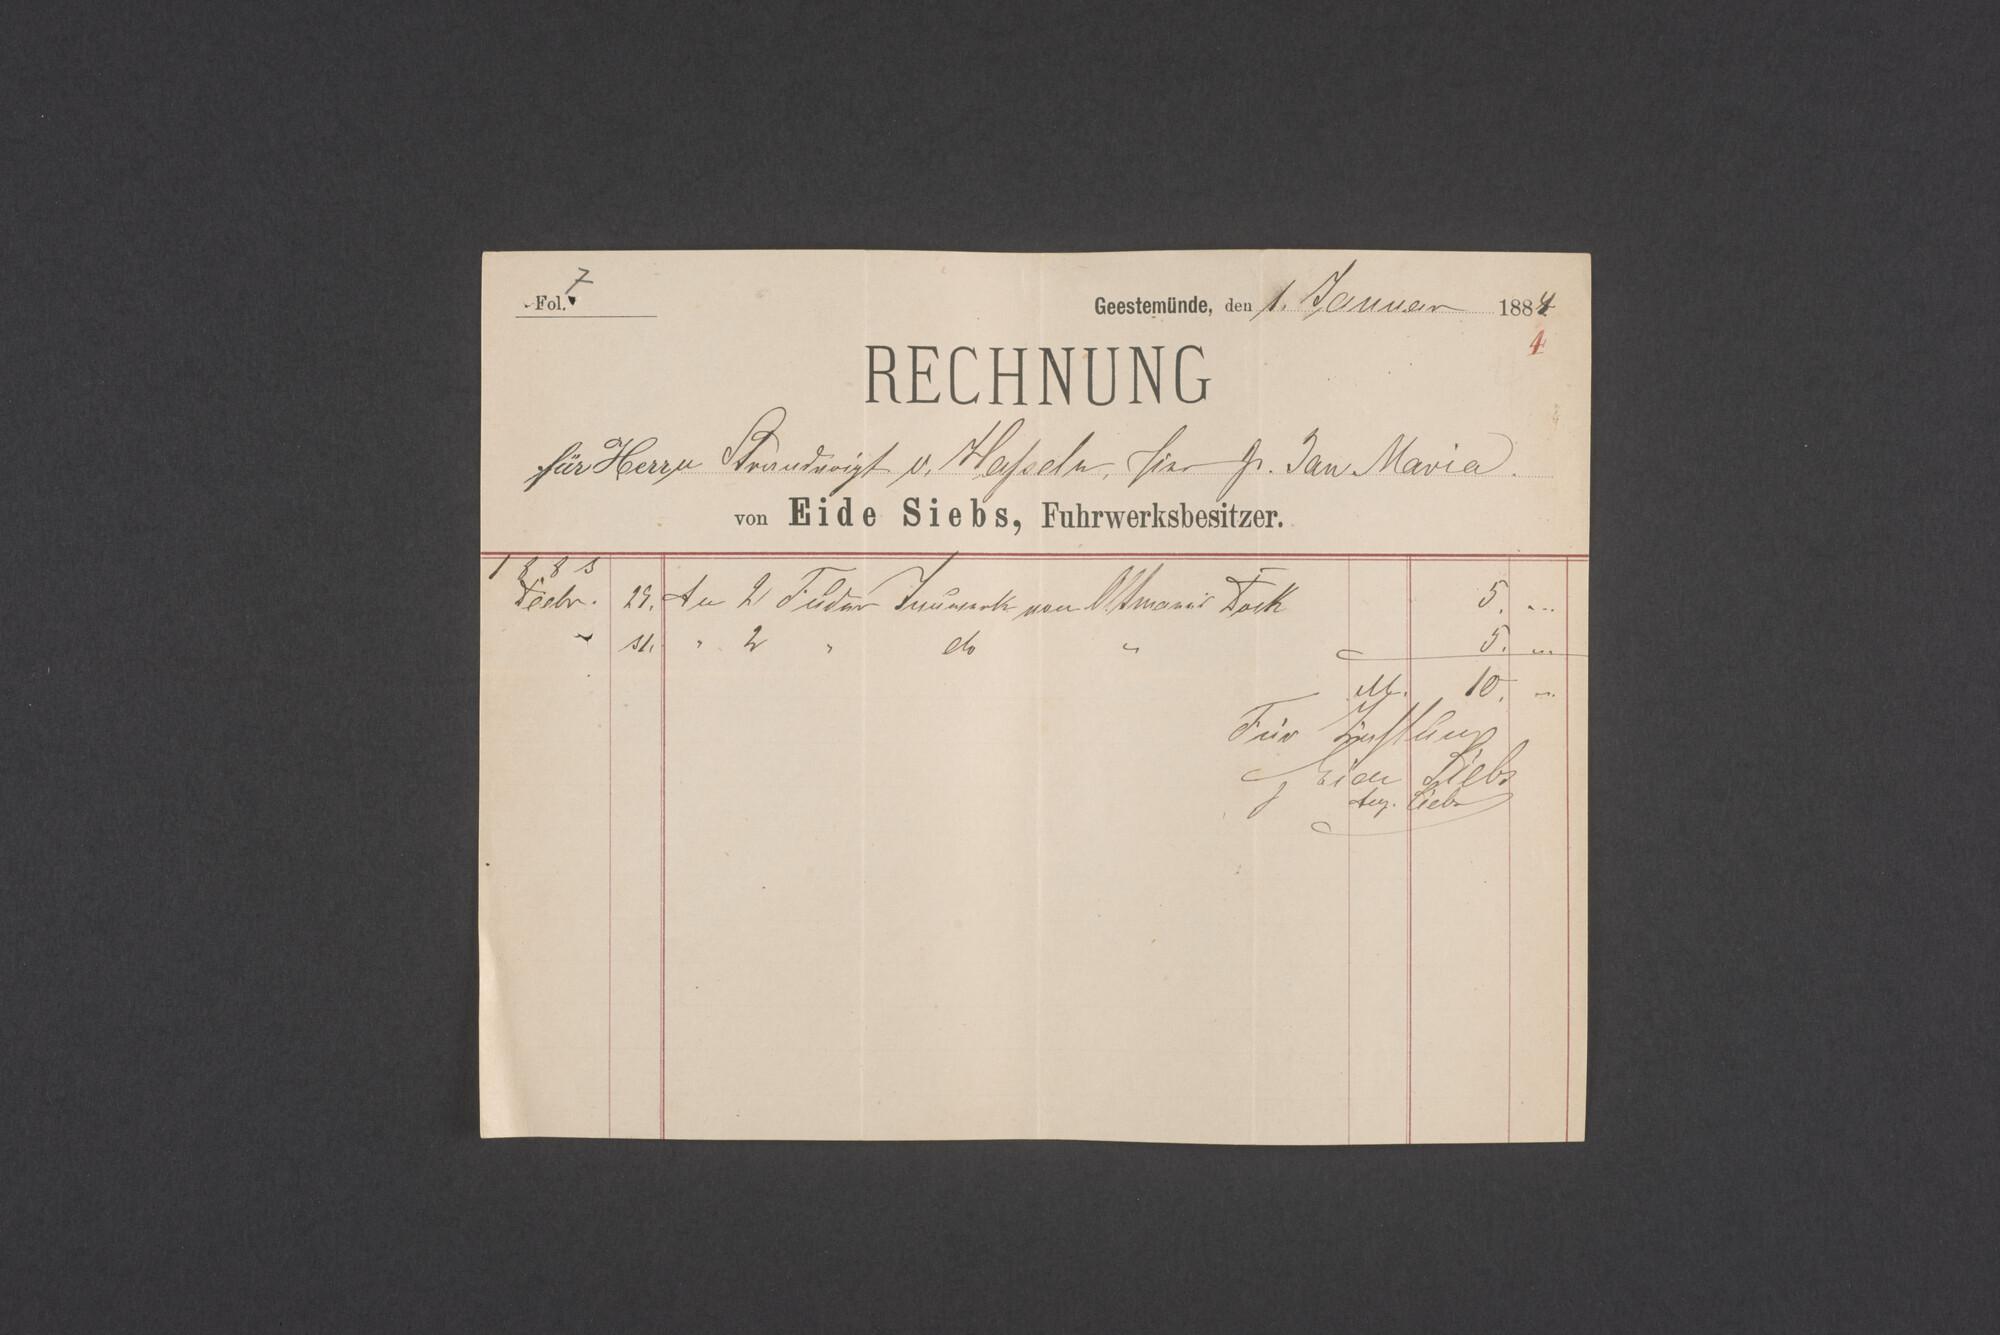 Fol. 7
Geestemünde, den 1. Januar 1884
4
RECHNUNG
für Herrn Strandvoigt v. Hasseln, hier pr. Jan Maria.
von Eide Siebs, Fuhrwerksbesitzer.
1883
29. An 2 Fuder von Oltmanns Dock 5. "
" 31. " 2 " do " 5. "
M. 10. "
Für Zahlung
Eide Siebs
Aug. Siebs